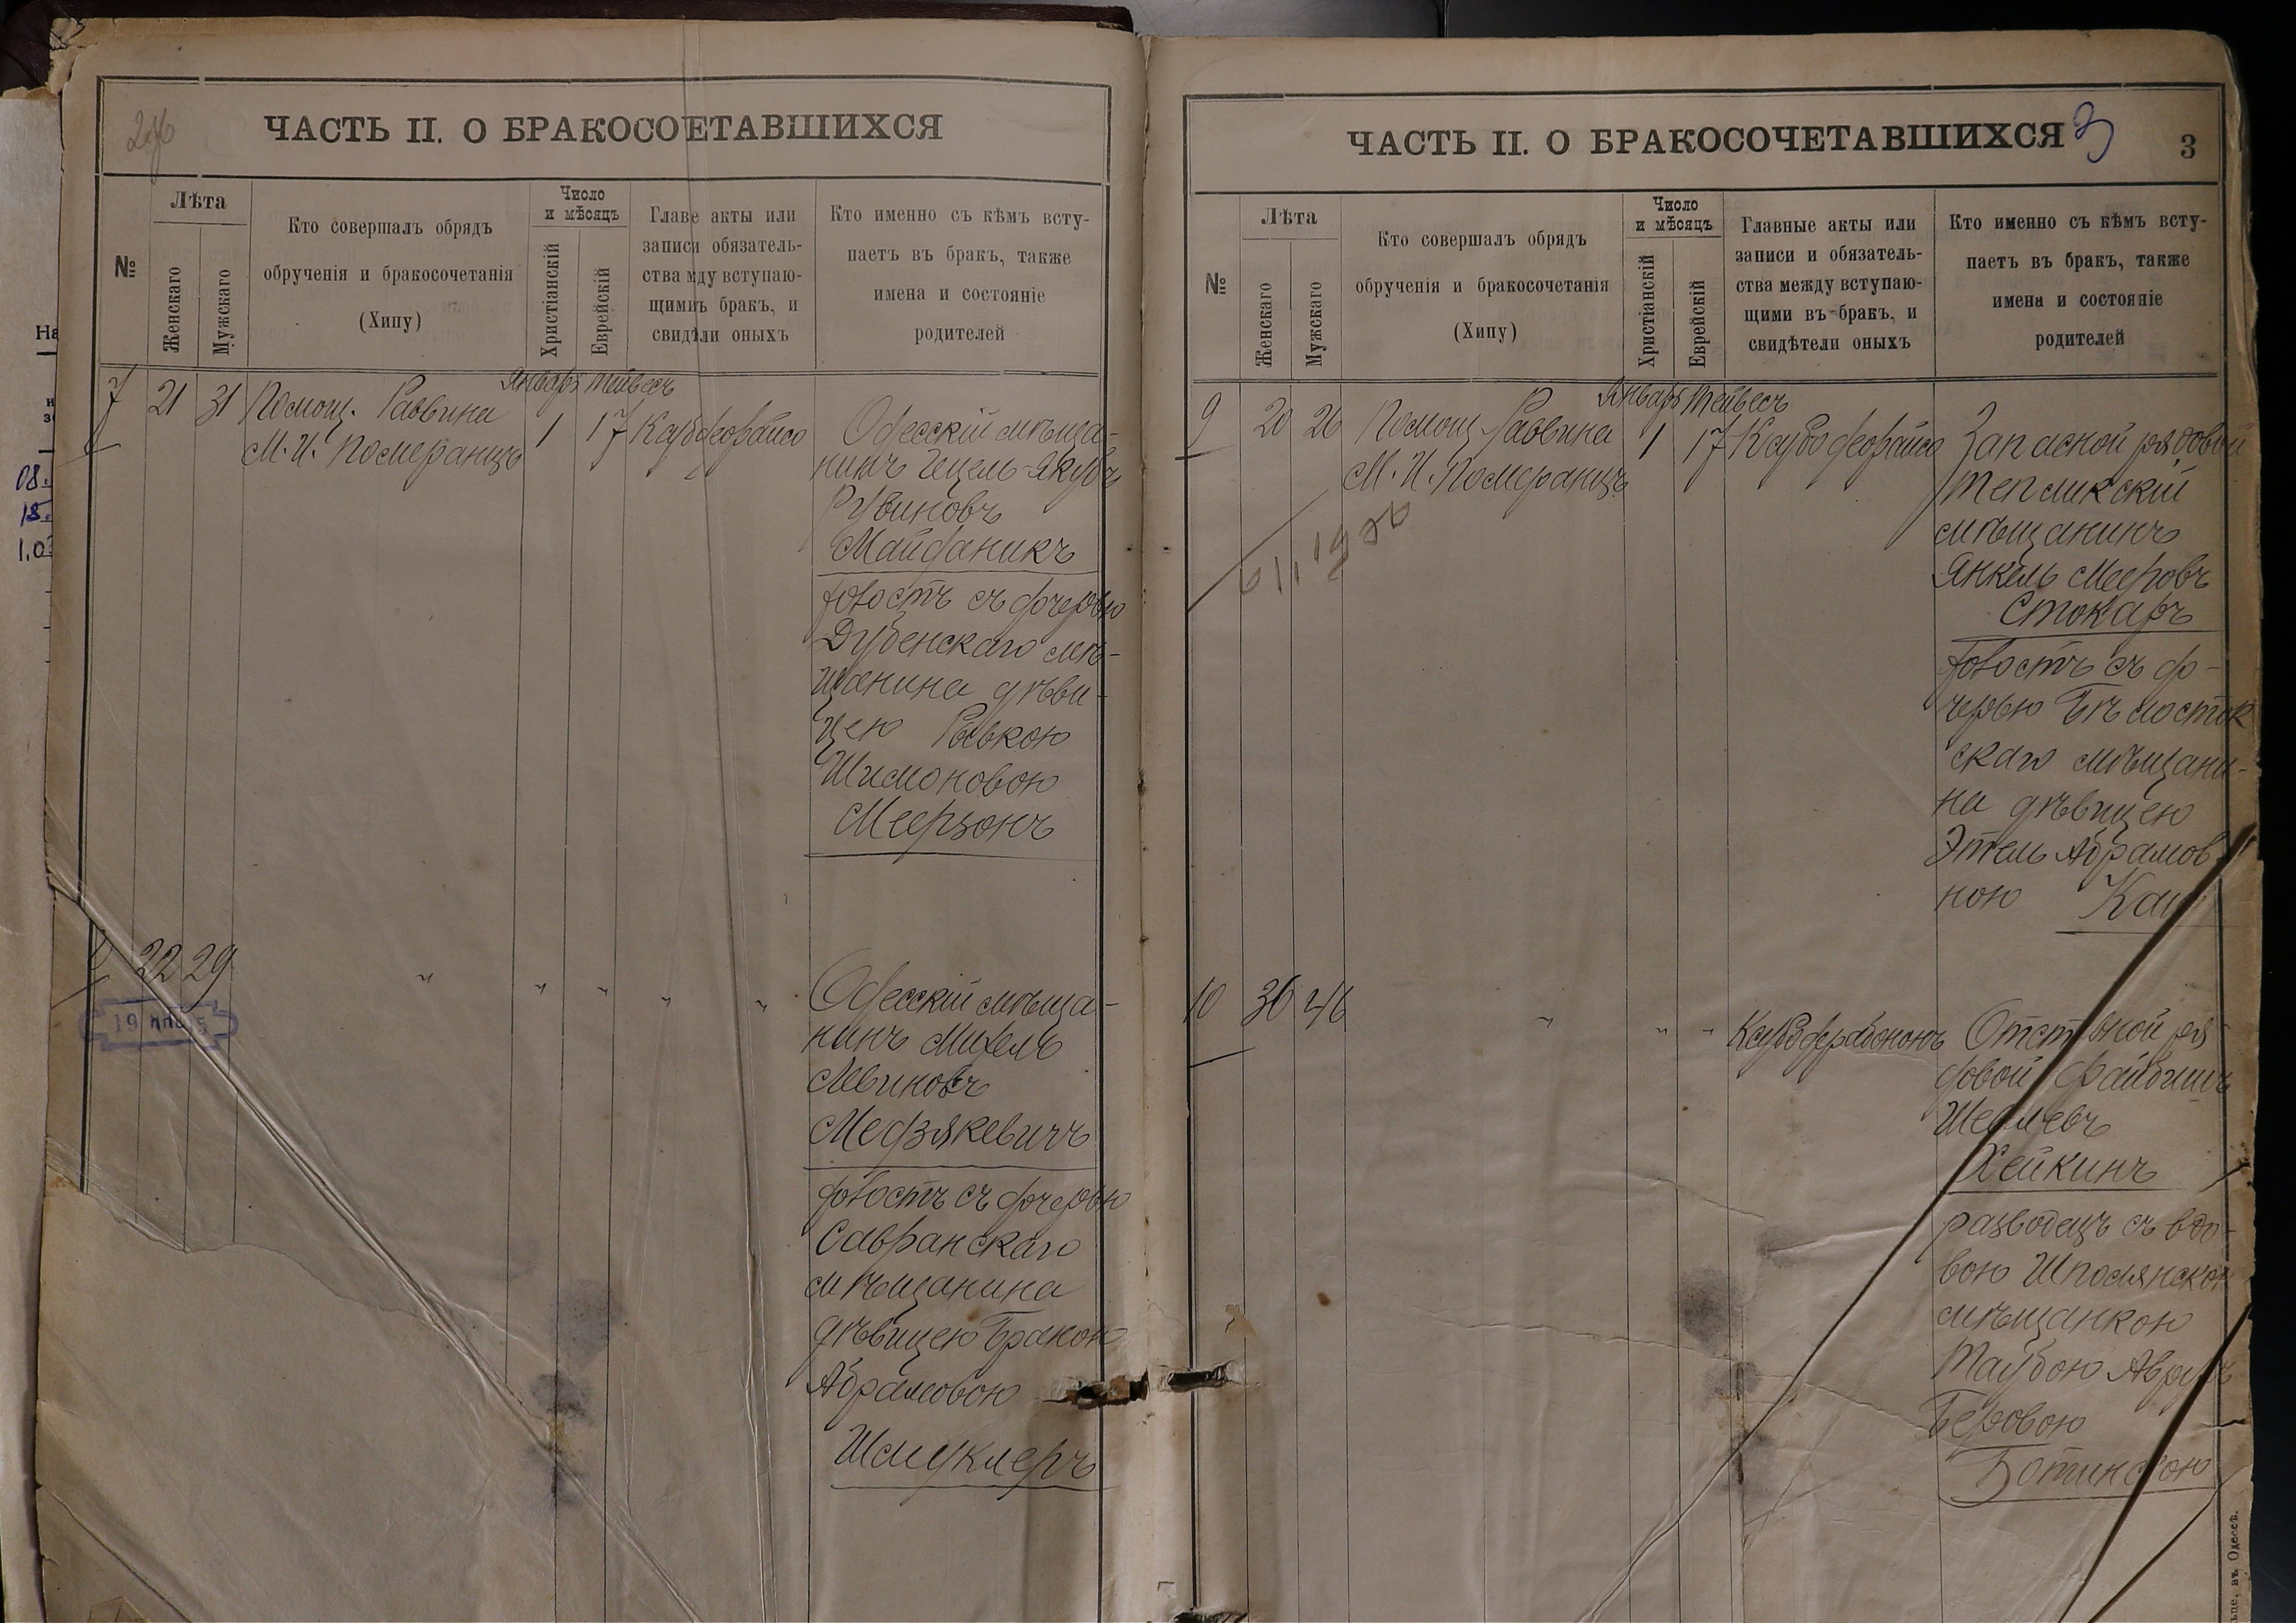 ЧАСТЬ II. О БРАКОСОЕТАВШИХСЯ
№
Лѣта
Женскаго
Мужскаго
Кто совершалъ обрядъ
обрученія и бракосочетанія
(Хипу)
Число
и мѣсяцъ
Христіанскій
Еврейскій
Главе акты или
записи обязатель-
ства мду вступаю-
щимиъ бракъ, и
свидѣли оныхъ
Кто именно съ кѣмъ всту-
паетъ въ бракъ, также
имена и состояніе
родителей
Январь Тейвесъ
7 21 31 Помощ. Раввина
М. И. Померанцъ
1 17
Одесскій мѣща-
нинъ Гецель-Якубъ
Рувиновъ
Майданикъ
холостъ съ дочерью
Дубенскаго мѣ-
щанина дѣви-
цею Рывкою
Шимоновою
Меерзонъ
22 29 " " " " "
Одесскій мѣща-
нинъ Михель
Левиковъ
Медзякевичъ
холостъ съ дочерью
Савранскаго
мѣщанина
дѣвицею Бранею
Абрамовою
Шмуклеръ
ЧАСТЬ II. О БРАКОСОЧЕТАВШИХСЯ
3
3
№
Лѣта
Женскаго
Мужскаго
Кто совершалъ обрядъ
обрученія и бракосочетанія
(Хипу)
Число
и мѣсяцъ
Христіанскій
Еврейскій
Главные акты или
записи и обязатель-
ства между вступаю-
щими въ бракъ, и
свидѣтели оныхъ
Кто именно съ кѣмъ всту-
паетъ въ бракъ, также
имена и состояніе
родителей
Январь Тейвесъ
9 20 26 Помощ. Раввина
М. И. Померанцъ
1 17
Запасной рядовой
Тепликскій
мѣщанинъ
Янкель Мееровъ
Стокаръ
холостъ съ до-
черью Бѣлосток
скаго мѣщани-
на дѣвицею
Этель Абрамов-
ною
10 36 46 " " "
Отставной ря
довой Файбишъ
Хейкинъ
разводецъ съ вдо-
вою Шполянскою
мѣщанкою
Таубою
Беровою
Ботинской